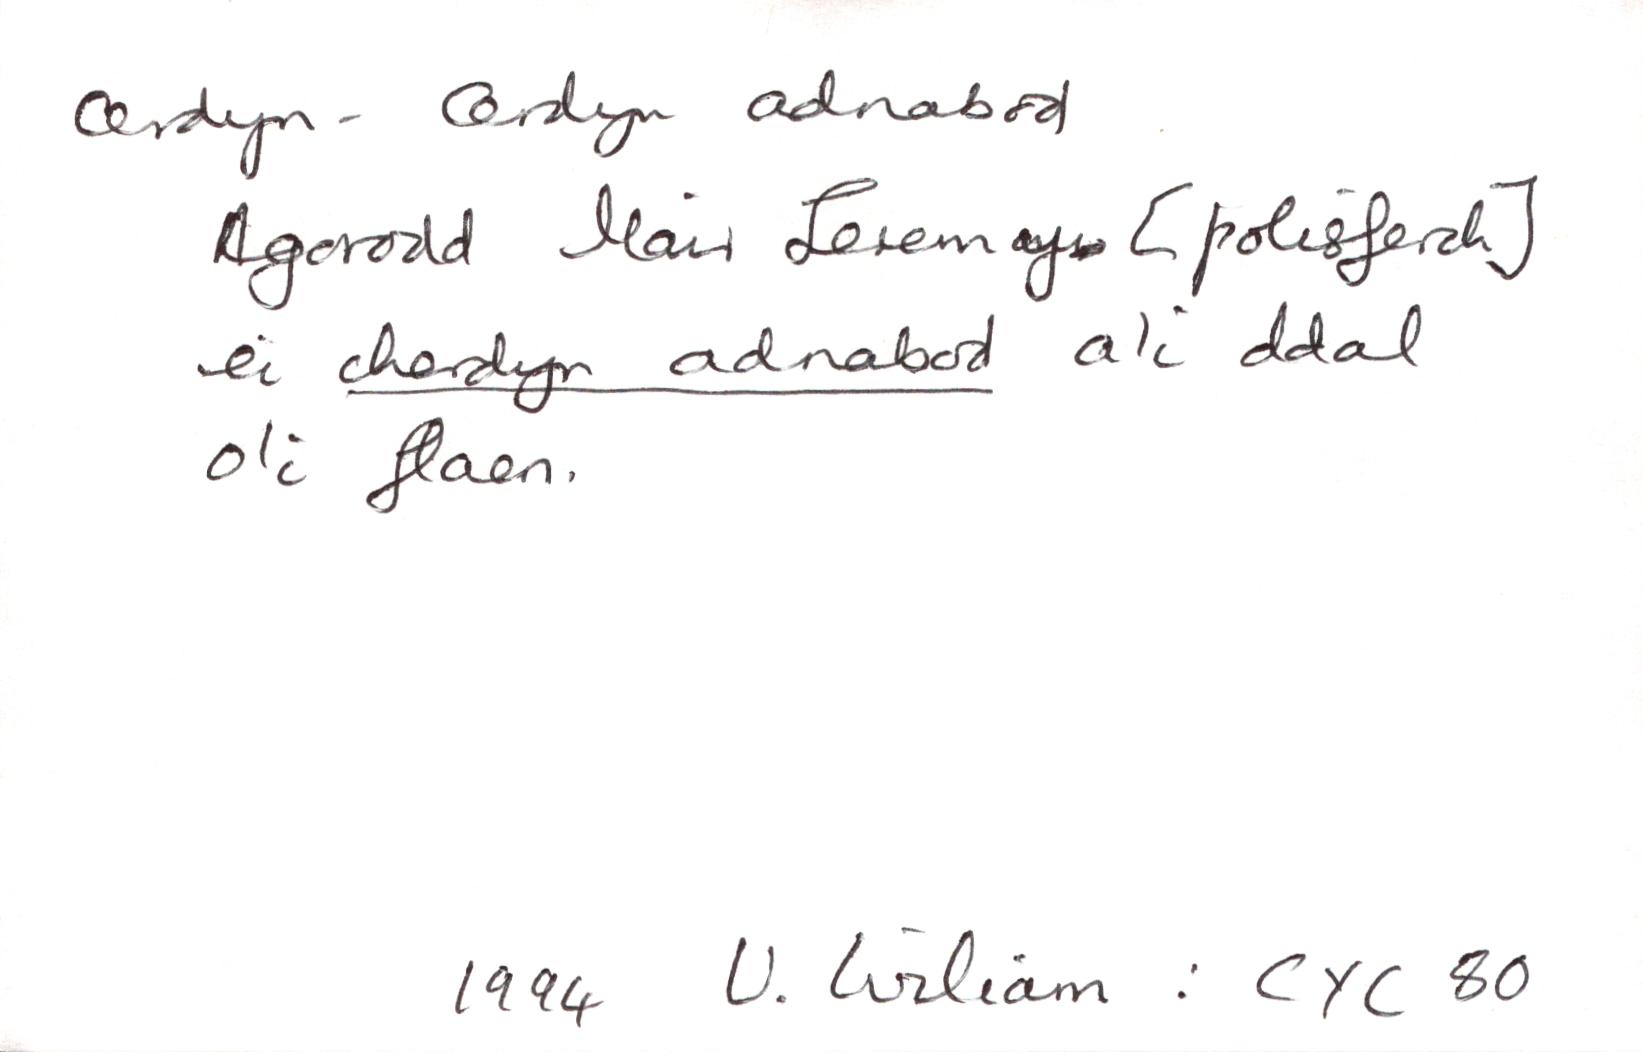 cerdyn - Cerdyn adnabod
Agorodd Mair [polisferch]
ei cherdyn adnabod a'i ddal
o'i flaen.
1994 U. Wiliam : CYC 80